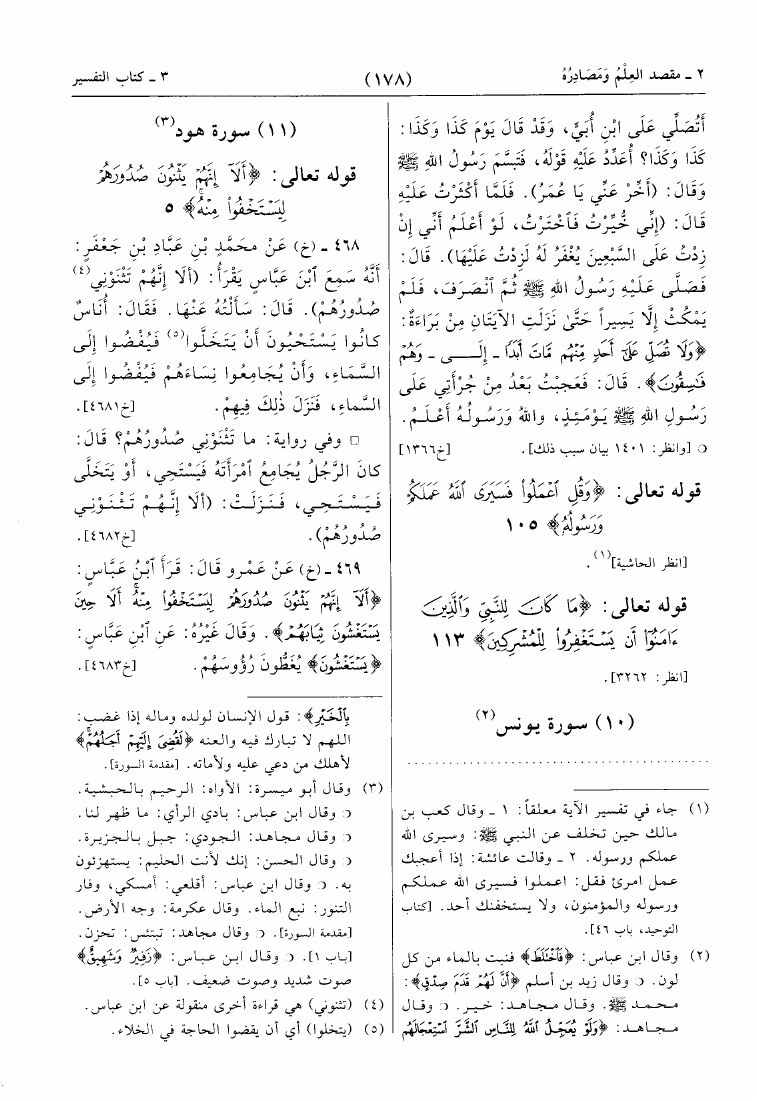 ٢ ـ مقصد العِلْمُ وَمَصَادِرُهُ
(١٧٨)
٣ ـ كتاب التفسير
أَتُصَلِّي عَلَى ابْنِ أُبَيٍّ، وَقَدْ قَالَ يَوْمَ كَذَا وَكَذَا:
كَذَا وَكَذَا؟ أُعَدِّدُ عَلَيْهِ قَوْلَهُ، فَتَبَسَّمَ رَسُولُ اللهِ ﷺ
وَقَالَ: (أَخِّرْ عَنِّي يَا عُمَرُ). فَلَمَّا أَكْثَرْتُ عَلَيْهِ
قَالَ: (إِنِّي خُيِّرْتُ فَٱخْتَرْتُ، لَوْ أَعْلَمُ أَنِّي إِنْ
زِدْتُ عَلَى السَّبْعِينَ يُغْفَرُ لَهُ لَزِدْتُ عَلَيْهَا). قَالَ:
فَصَلَّى عَلَيْهِ رَسُولُ اللهِ ﷺ ثُمَّ ٱنْصَرَفَ، فَلَمْ
يَمْكُثْ إِلَّا يَسِيراً حَتَّىٰ نَزَلَتِ الآيَتَانِ مِنْ بَرَاءَةٌ:
﴿وَلَا تُصَلِّ عَلَىٰٓ أَحَدٍ مِّنْهُم مَّاتَ أَبَدًا ـ إِلَــــى ـ وَهُمْ
فَـٰسِقُونَ﴾. قَالَ: فَعَجِبْتُ بَعْدُ مِنْ جُرْأَتِي عَلَى
رَسُولِ اللهِ ﷺ يَوْمَئِذٍ، واللهُ وَرَسُولُهُ أَعْلَمُ.
○ [وانظر: ١٤٠١ بيان سبب ذلك]. [خ١٣٦٦]
قوله تعالى: ﴿وَقُلِ ٱعْمَلُوا۟ فَسَيَرَى ٱللَّهُ عَمَلَكُمْ
وَرَسُولُهُۥ﴾ ١٠٥
[انظر الحاشية](١).
قوله تعالى: ﴿مَا كَانَ لِلنَّبِىِّ وَٱلَّذِينَ
ءَامَنُوٓا۟ أَن يَسْتَغْفِرُوا۟ لِلْمُشْرِكِينَ﴾ ١١٣
[انظر: ٣٢٦٢].
(١٠) سورة يونس(٢)
(١) جاء في تفسير الآية معلقاً: ١ ـ وقال كعب بن
مالك حين تخلف عن النبي ﷺ: وسيرى الله
عملكم ورسوله. ٢ ـ وقالت عائشة: إذا أعجبك
عمل امرئ فقل: اعملوا فسيرى الله عملكم
ورسوله والمؤمنون، ولا يستخفنك أحد. [كتاب
التوحيد، باب ٤٦].
(٢) وقال ابن عباس: ﴿فَٱخْتَلَطَ﴾ فنبت بالماء من كل
لون. ○ وقال زيد بن أسلم ﴿أَنَّ لَهُمْ قَدَمَ صِدْقٍ﴾:
محمد ﷺ. وقال مجاهد: خير. ○ وقال
مجاهد: ﴿وَلَوْ يُعَجِّلُ ٱللَّهُ لِلنَّاسِ ٱلشَّرَّ ٱسْتِعْجَالَهُم
(١١) سورة هود(٣)
قوله تعالى: ﴿أَلَآ إِنَّهُمْ يَثْنُونَ صُدُورَهُمْ
لِيَسْتَخْفُوا۟ مِنْهُ﴾ ٥
٤٦٨ ـ (خ) عَنْ مَحمَّدِ بْنِ عَبَّادِ بْنِ جَعْفَرٍ:
أَنَّهُ سَمِعَ ٱبْنَ عَبَّاسٍ يَقْرَأُ: (أَلا إِنَّهُمْ تَثْنَوْنِي(٤)
صُدُورُهُمْ). قَالَ: سَأَلْتُهُ عَنْهَا. فَقَالَ: أُنَاسٌ
كانُوا يَسْتَحْيُونَ أَنْ يَتَخَلَّوا(٥) فَيُفْضُوا إِلَى
السَّمَاءِ، وَأَنْ يُجَامِعُوا نِسَاءَهُمْ فَيُفْضُوا إِلَى
السَّماءِ، فَنَزَلَ ذٰلِكَ فِيهِمْ. [خ٤٦٨١].
□ وفي رواية: ما تَثْنَوْنِي صُدُورُهُمْ؟ قَالَ:
كانَ الرَّجُلُ يُجَامِعُ ٱمْرَأَتَهُ فَيَسْتَحِي، أَوْ يَتَخَلَّى
فَيَسْتَحِي، فَنَزَلَتْ: (أَلا إِنَّهُمْ تَثْنَوْنِي
صُدُورُهُمْ). [خ٤٦٨٢].
٤٦٩ ـ (خ) عَنْ عَمْرٍو قَالَ: قَرَأَ ٱبْنُ عَبَّاسٍ:
﴿أَلَآ إِنَّهُمْ يَثْنُونَ صُدُورَهُمْ لِيَسْتَخْفُوا۟ مِنْهُ أَلَا حِينَ
يَسْتَغْشُونَ ثِيَابَهُمْ﴾. وَقَالَ غَيْرُهُ: عَنِ ٱبْنِ عَبَّاسٍ:
﴿يَسْتَغْشُونَ﴾ يُغَطُّونَ رُؤُوسَهُمْ. [خ٤٦٨٣].
بِٱلْخَيْرِ﴾: قول الإنسان لولده وماله إذا غضب:
اللهم لا تبارك فيه والعنه ﴿لَقُضِىَ إِلَيْهِمْ أَجَلُهُمْ﴾
لأهلك من دعي عليه ولأماته. [مقدمة السورة].
(٣) وقال أبو ميسرة: الأواه: الرحيم بالحبشية.
○ وقال ابن عباس: بادي الرأي: ما ظهر لنا.
○ وقال مجاهد: الجودي: جبل بالجزيرة.
○ وقال الحسن: إنك لأنت الحليم: يستهزئون
به. ○ وقال ابن عباس: أقلعي: أمسكي، وفار
التنور: نبع الماء. وقال عكرمة: وجه الأرض.
[مقدمة السورة]. ○ وقال مجاهد: تبتئس: تحزن.
[باب ١]. ○ وقال ابن عباس: ﴿زَفِيرٌ وَشَهِيقٌ﴾
صوت شديد وصوت ضعيف. [باب ٥].
(٤) (تثنوني) هي قراءة أخرى منقولة عن ابن عباس.
(٥) (يتخلوا) أي أن يقضوا الحاجة في الخلاء.